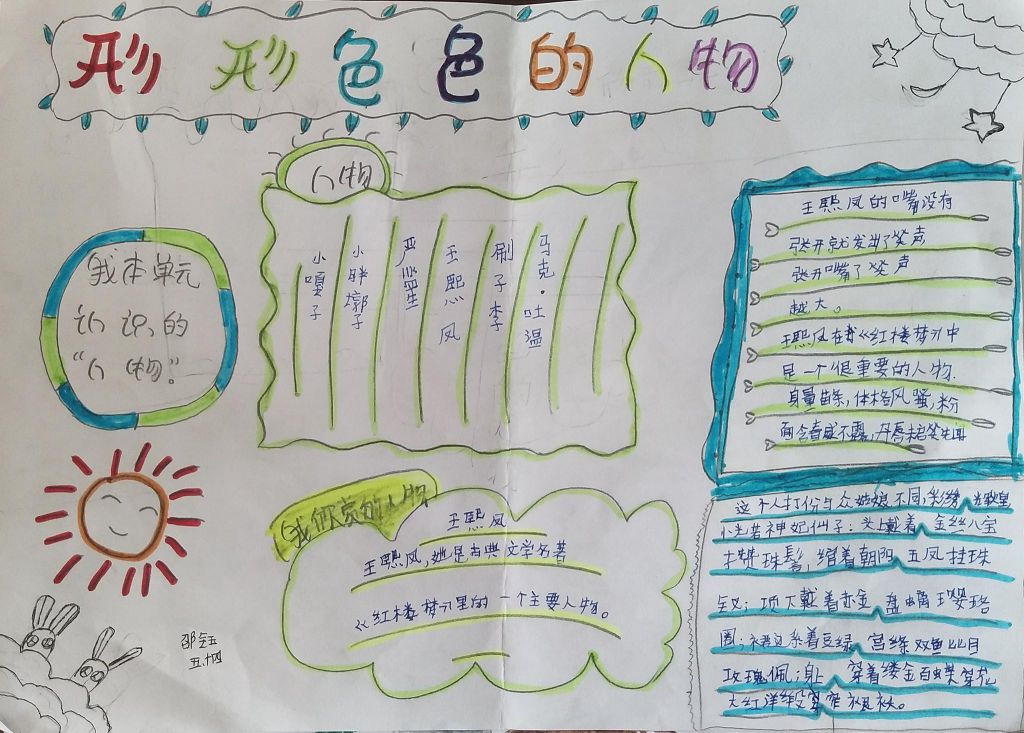 形形色色的人物
人物
我本单元
认识的
“人物”
小嘎子
小胖墩子
严监生
王熙凤
刷子李
马克·吐温
王熙凤的嘴没有
张开就发出了笑声
张开嘴了笑声
越大。
王熙凤在《红楼梦》中
是一个很重要的人物.
身量苗条,体格风骚,粉
面含春威不露,丹唇未启笑先闻
这个人打份与众姑娘不同;彩绣
光若神妃仙子:头上戴着金丝八宝
珠髻,绾着朝阳五凤挂珠
钗;项下戴着赤金盘螭璎珞
圈;裙边系着豆绿宫绦双鱼比目
玫瑰佩;身上穿着缕金百蝶穿花
大红洋缎窄裉袄。
我欣赏的人物
王熙凤
王熙凤,她是古典文学名著
《红楼梦》里的一个主要人物。
邵钰